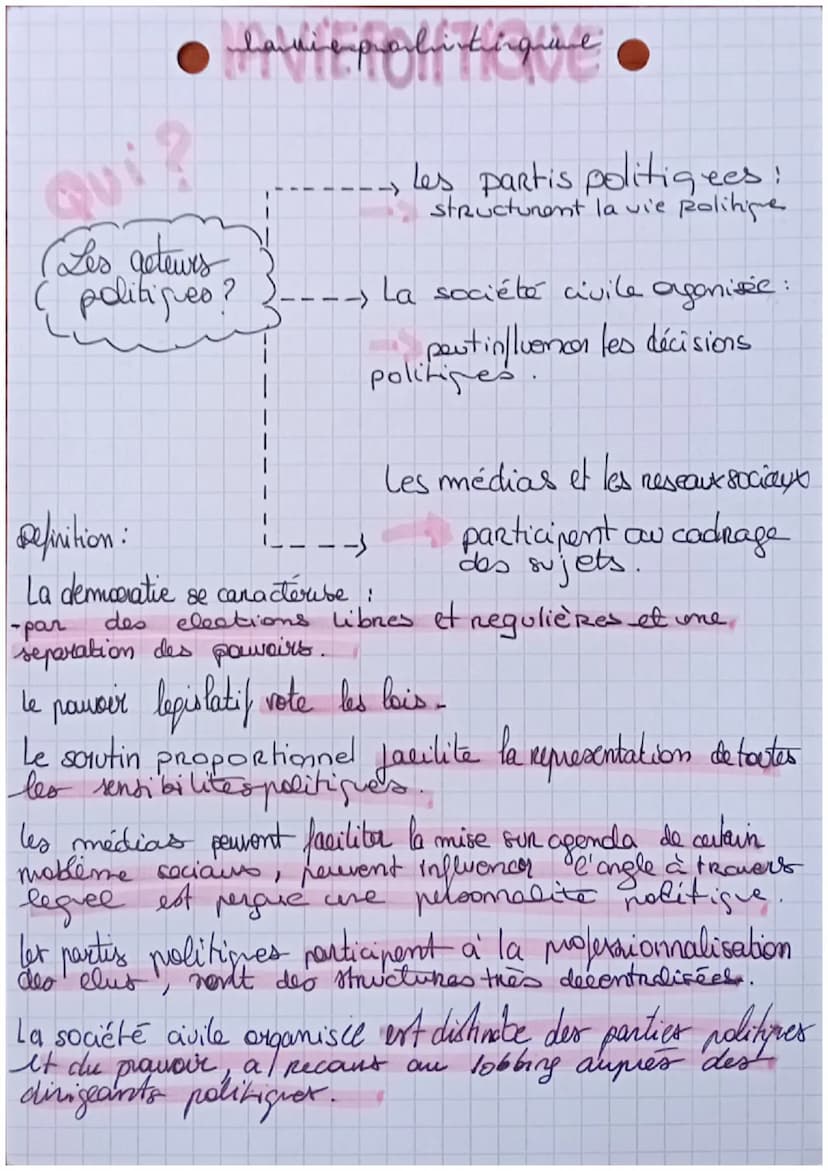 La vie politique
LA VIE POLITIQUE
Qui?
Les acteurs
politiques?
les partis politiques :
structurent la vie politique
La société civile organisée :
peut influencer les décisions
politiques.
Les médias et les reseaux sociaux
participent au cadrage
des sujets.
Definition :
La democratie se caractérise :
-par des elections libres et regulières et une
separation des pouvoirs.
le pouvoir legislatif vote les lois.
Le scrutin proportionnel facilite la representation de toutes
les sensibilités politiques.
les médias peuvent faciliter la mise sur agenda de certain
problème sociaux, peuvent influencer l'angle à travers
lequel est perçue une personnalité politique.
les partis politiques participent à la professionnalisation
des elus, sont des structures très decentralisées.
La société civile organisée est distincte des parties politiques
et du pouvoir, a recours au lobbing auprès des
dirigeants politiques.